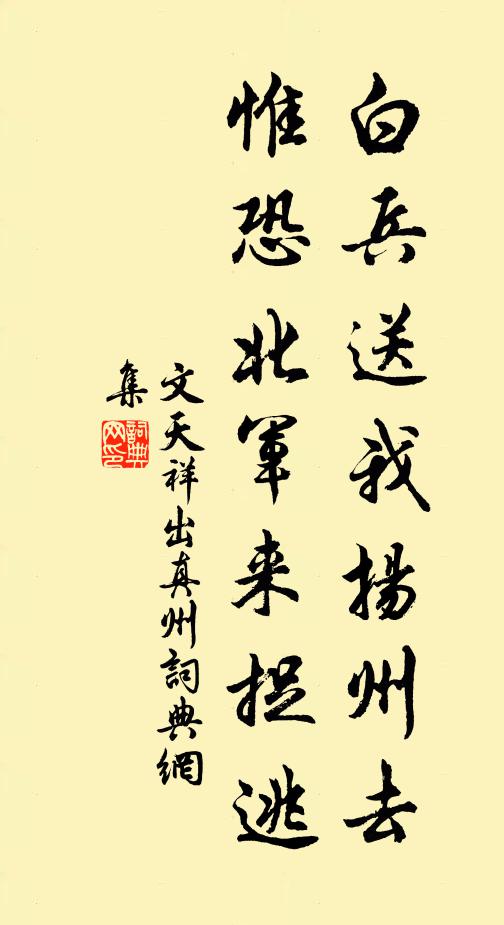 白兵送我揚州去
惟恐北軍来捉逃
文天祥出真州詞典網
集
詞典
网印